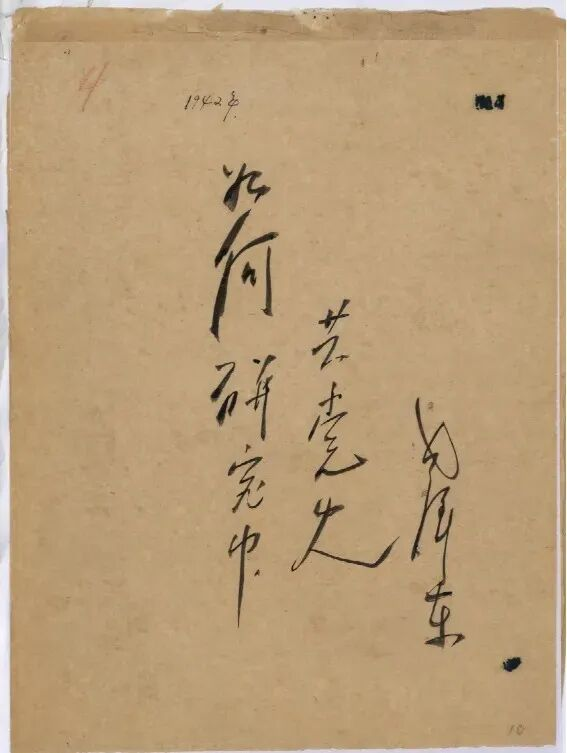 1942年
如何研究中
共党史
毛泽东
10